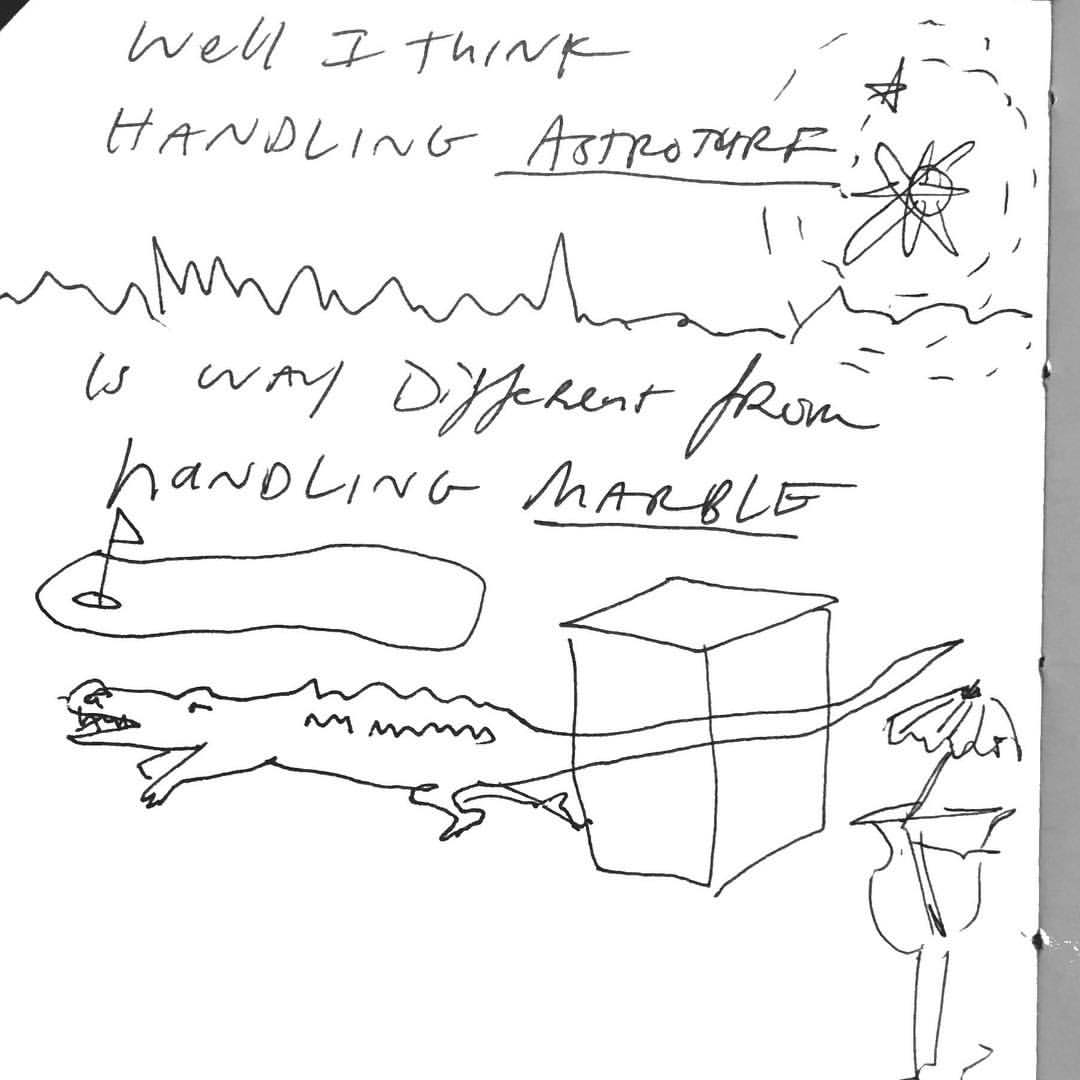 Well I think
HANDLING ASTROTURF
Is way Different from
HANDLING MARBLE